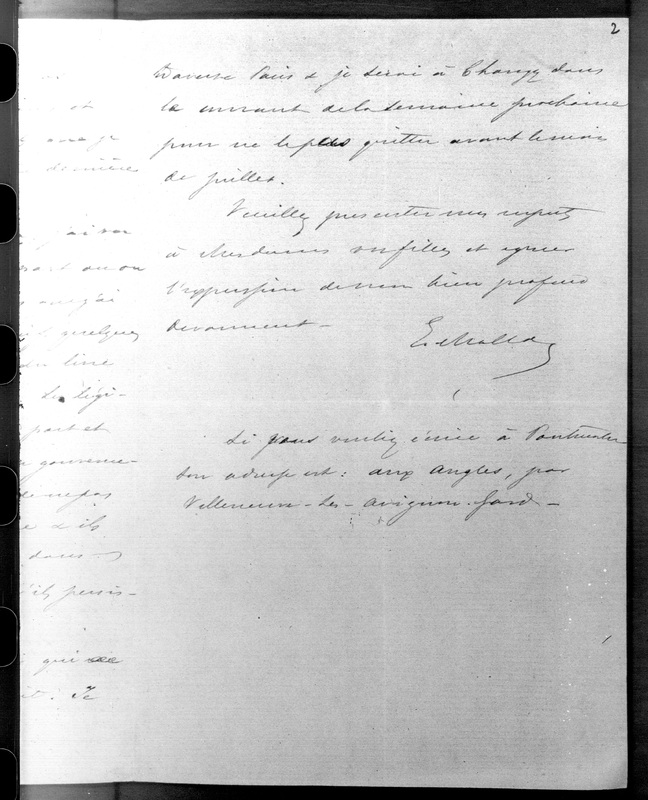 2
traverse Paris & je serai à Changy dans
le courant de la semaine prochaine
pour ne le plus quitter avant le mois
de juillet.
Veuillez presenter mes respects
à Mesdames vos filles et agréer
l'expression de mon bien profond
devouement -
Si vous vouliez écrire à Pontmartin
son adresse est : aux Angles, par
Villeneuve-les-Avignon. Gard -
et
que je
dernière
j'ai
quelques
livre
La légi-
part et
gouverne-
de ne pas
& ils
dans
ils persis-
qui
Je